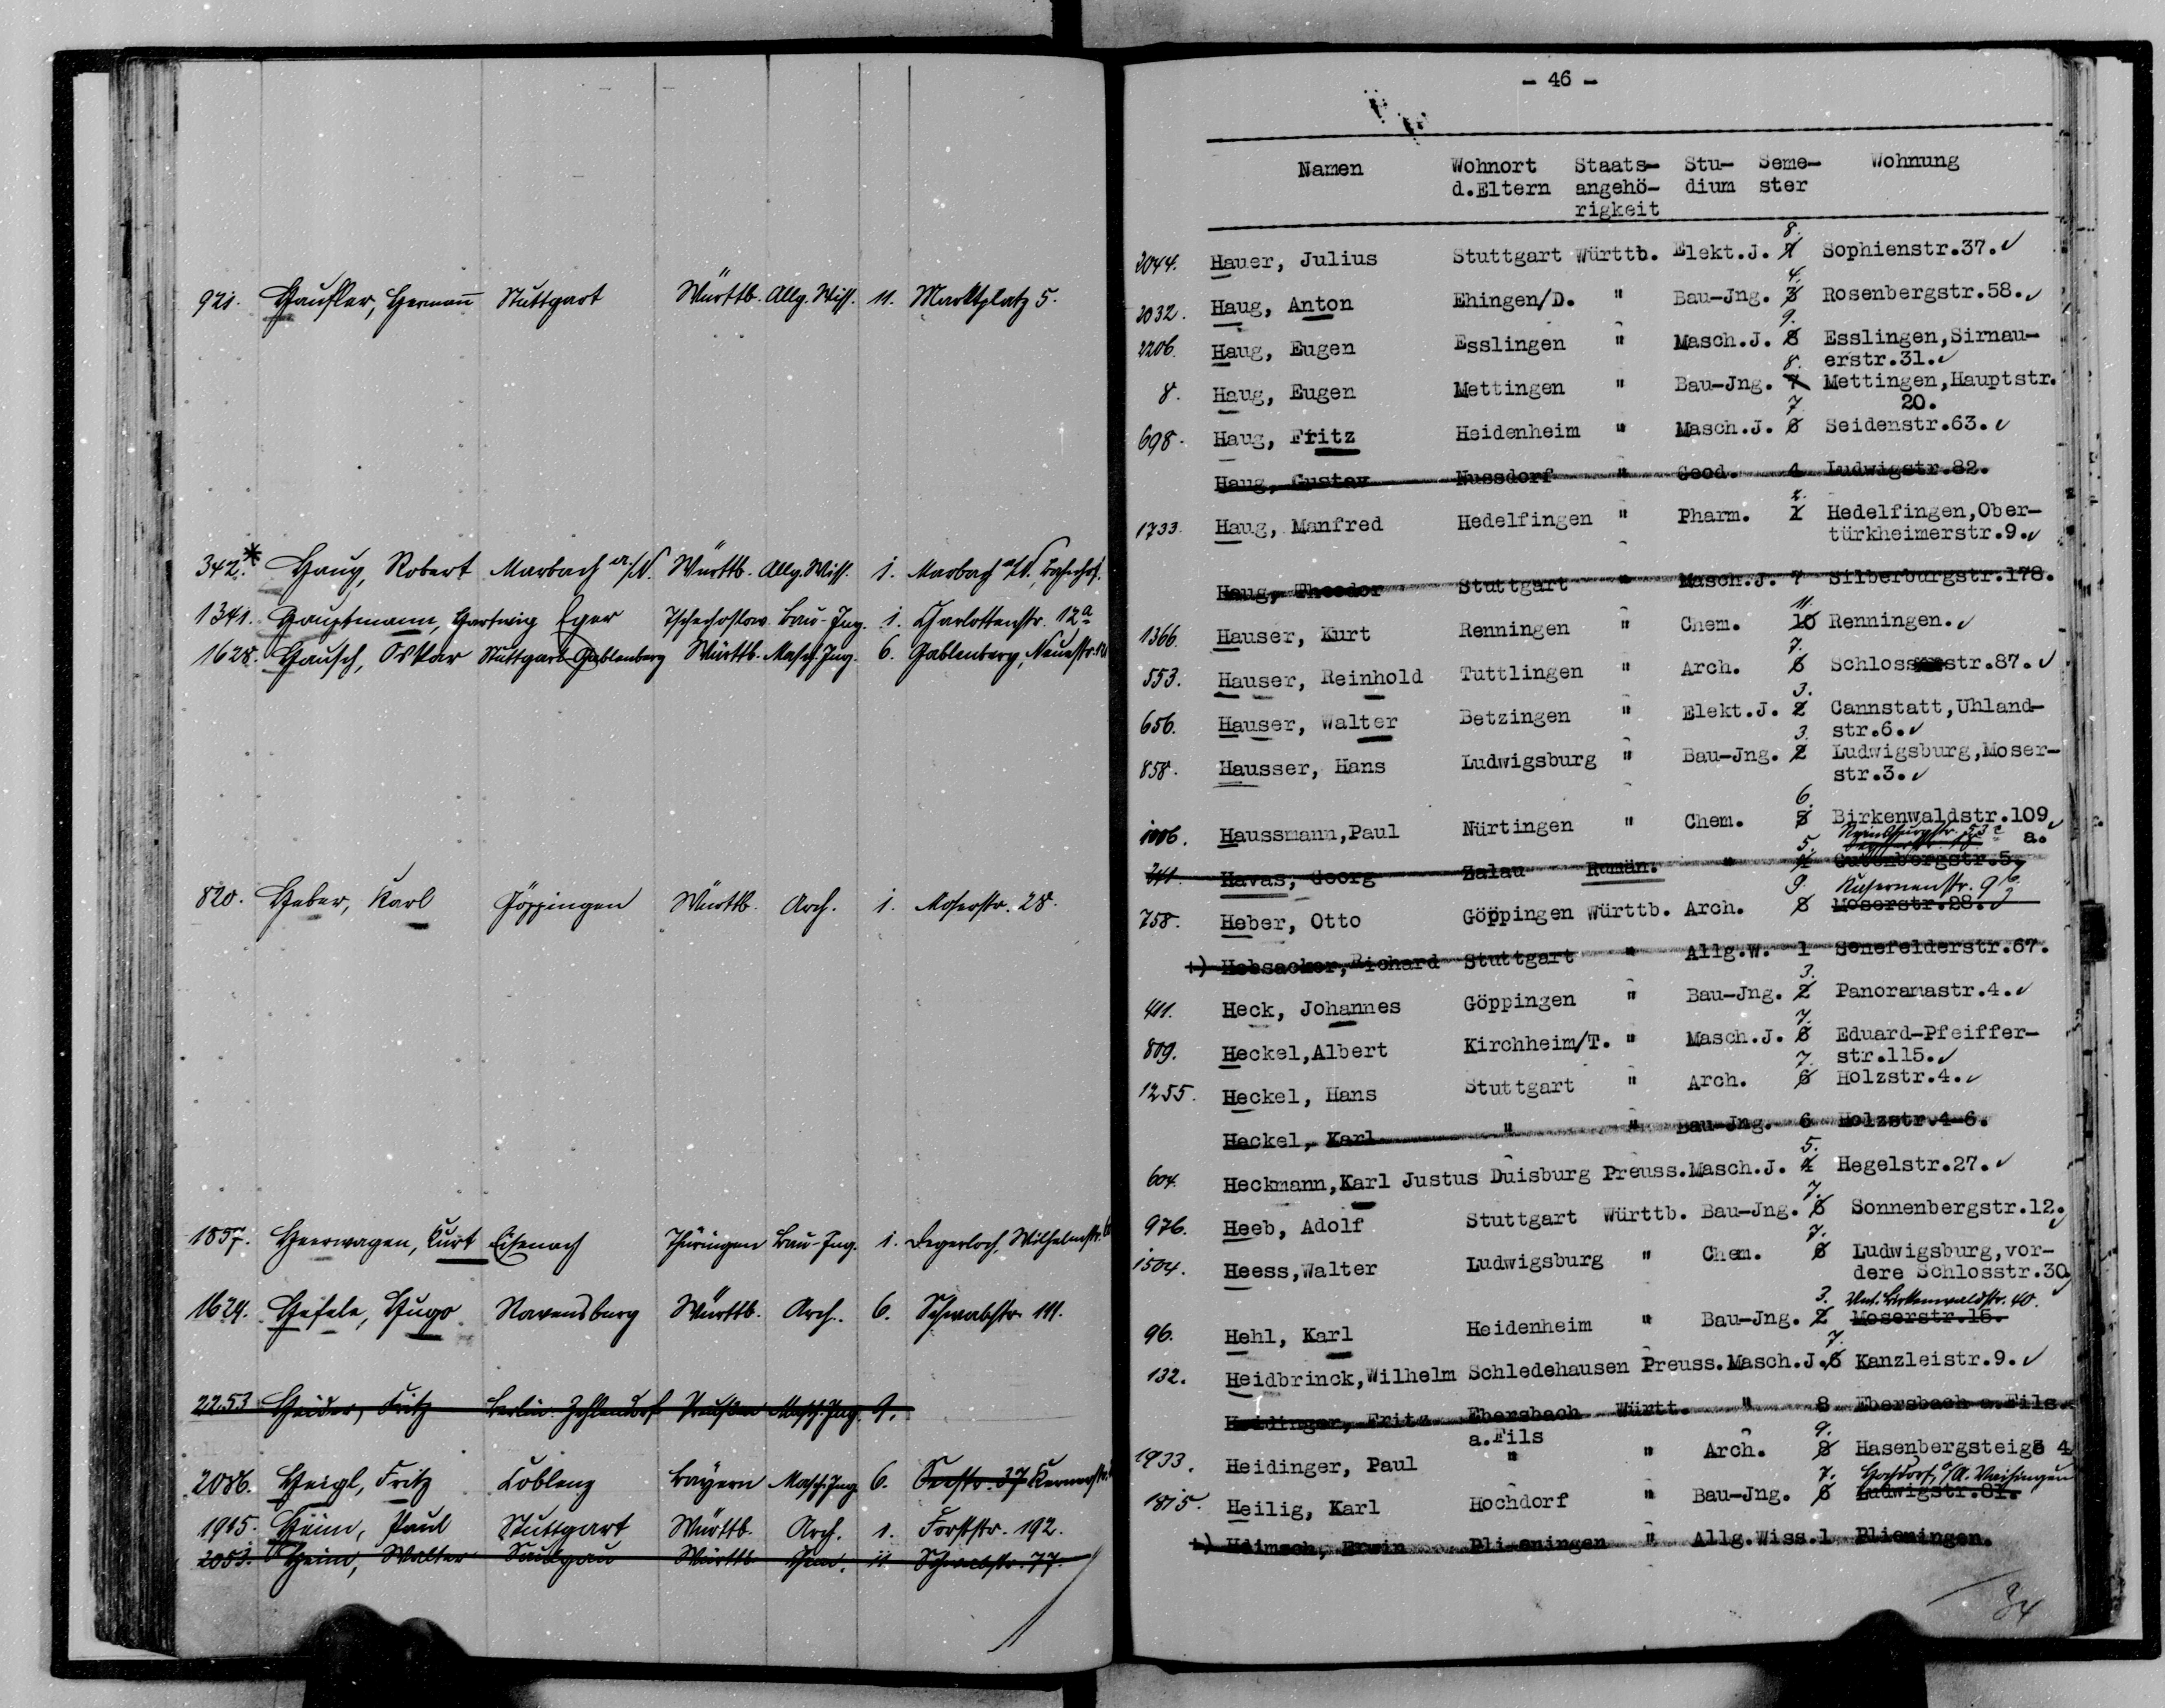 921. Haufler, Hermann Stuttgart Württb. Allg. Wiss. 11. Marktplatz 5.
342.* Haug, Robert Marbach a/N. Württb. Allg. Wiss. 1. Marbach a/N., Bahnhof.
1341. Hauptmann, Hartwig Eger Tschechoslow. Bau-Ing. 1. Charlottenstr. 12a
1628. Hausch, Oskar Stuttgart-Gablenberg Württb. Masch. Ing. 6. Gablenberg, Neuestr.
820. Heber, Karl Göppingen Württb. Arch. 1. Moserstr. 28.
1857. Heerwagen, Kurt Eisenach Thüringen Bau-Ing. 1. Degerloch, Wilhelmstr.
1624. Hefele, Hugo Ravensburg Württb. Arch. 6. Schwabstr. 111.
2253 Heider, Fritz Berlin-Zehlendorf Preußen Masch. Ing. 9.
2086. Heigl, Fritz Koblenz Bayern Masch. Ing. 6. Seestr. 37 Kernerstr.
1915. Heim, Paul Stuttgart Württb. Arch. 1. Forststr. 192.
2053. Heim, Walter Saulgau Württb. 11 Schwabstr. 77.
- 46 -
Namen Wohnort Staats- Stu- Seme- Wohnung
d.Eltern angehö- dium ster
rigkeit
8.
2044. Hauer, Julius Stuttgart Württb. Elekt.J. 7 Sophienstr.37.
4.
2032. Haug, Anton Ehingen/D. " Bau-Jng. 3 Rosenbergstr.58.
9.
2206. Haug, Eugen Esslingen " Masch.J. 8 Esslingen,Sirnau-
8. erstr.31.
8. Haug, Eugen Mettingen " Bau-Jng. 7 Mettingen,Hauptstr.
7 20.
698. Haug, Fritz Heidenheim " Masch.J. 6 Seidenstr.63.
Haug, Gustav Nussdorf " Geod. 4 Ludwigstr.82.
2.
1733. Haug, Manfred Hedelfingen " Pharm. 1 Hedelfingen,Ober-
türkheimerstr.9.
Haug, Theodor Stuttgart " Masch.J. 7 Silberburgstr.178.
11.
1366. Hauser, Kurt Renningen " Chem. 10 Renningen.
7.
553. Hauser, Reinhold Tuttlingen " Arch. 6 Schlossstr.87.
3.
656. Hauser, Walter Betzingen " Elekt.J. 2 Cannstatt,Uhland-
3. str.6.
858. Hausser, Hans Ludwigsburg " Bau-Jng. 2 Ludwigsburg,Moser-
str.3.
6.
1006. Haussmann,Paul Nürtingen " Chem. 5 Birkenwaldstr.109
5. Reinsburgstr. 53c a.
241. Havas, Georg Zalau Rumän. " 4 Gutenbergstr.5.
9. Kasernenstr. 9b.
758. Heber, Otto Göppingen Württb. Arch. 8 Moserstr.28.
+) Hebsacker,Richard Stuttgart " Allg.W. 1 Senefelderstr.67.
3.
411. Heck, Johannes Göppingen " Bau-Jng. 2 Panoramastr.4.
7.
809. Heckel,Albert Kirchheim/T. " Masch.J. 6 Eduard-Pfeiffer-
7. str.115.
1255. Heckel, Hans Stuttgart " Arch. 6 Holzstr.4.
Heckel, Karl " " Bau-Jng. 6 Holzstr.4-6.
5.
604. Heckmann,Karl Justus Duisburg Preuss.Masch.J. 4 Hegelstr.27.
7.
976. Heeb, Adolf Stuttgart Württb. Bau-Jng. 6 Sonnenbergstr.12.
7.
1504. Heess,Walter Ludwigsburg " Chem. 6 Ludwigsburg,vor-
dere Schlosstr.30
3. Unt. Birkenwaldstr. 40.
96. Hehl, Karl Heidenheim " Bau-Jng. 2 Moserstr.15.
7.
132. Heidbrinck,Wilhelm Schledehausen Preuss.Masch.J.6 Kanzleistr.9.
Heidinger, Fritz Ebersbach Württ. " 8 Ebersbach a.Fils.
a.Fils 9.
1933. Heidinger, Paul " " Arch. 8 Hasenbergsteige 4
7. Hochdorf, O/A. Vaihingen
1815. Heilig, Karl Hochdorf " Bau-Jng. 6 Ludwigstr.81.
+) Heimsch, Erwin Plieningen " Allg.Wiss.1 Plieningen.
34